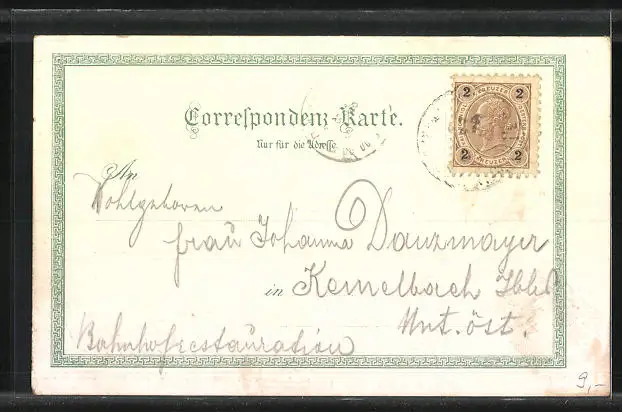 Correspondenz-Karte.
Nur für die Adresse.
2 KREUZER 2
2 KREUZER 2
An
Wohlgeboren
Frau Johanna Danzmayer
in Kemelbach Ibbs
Unt. öst.
Bahnhofrestauration
9,-